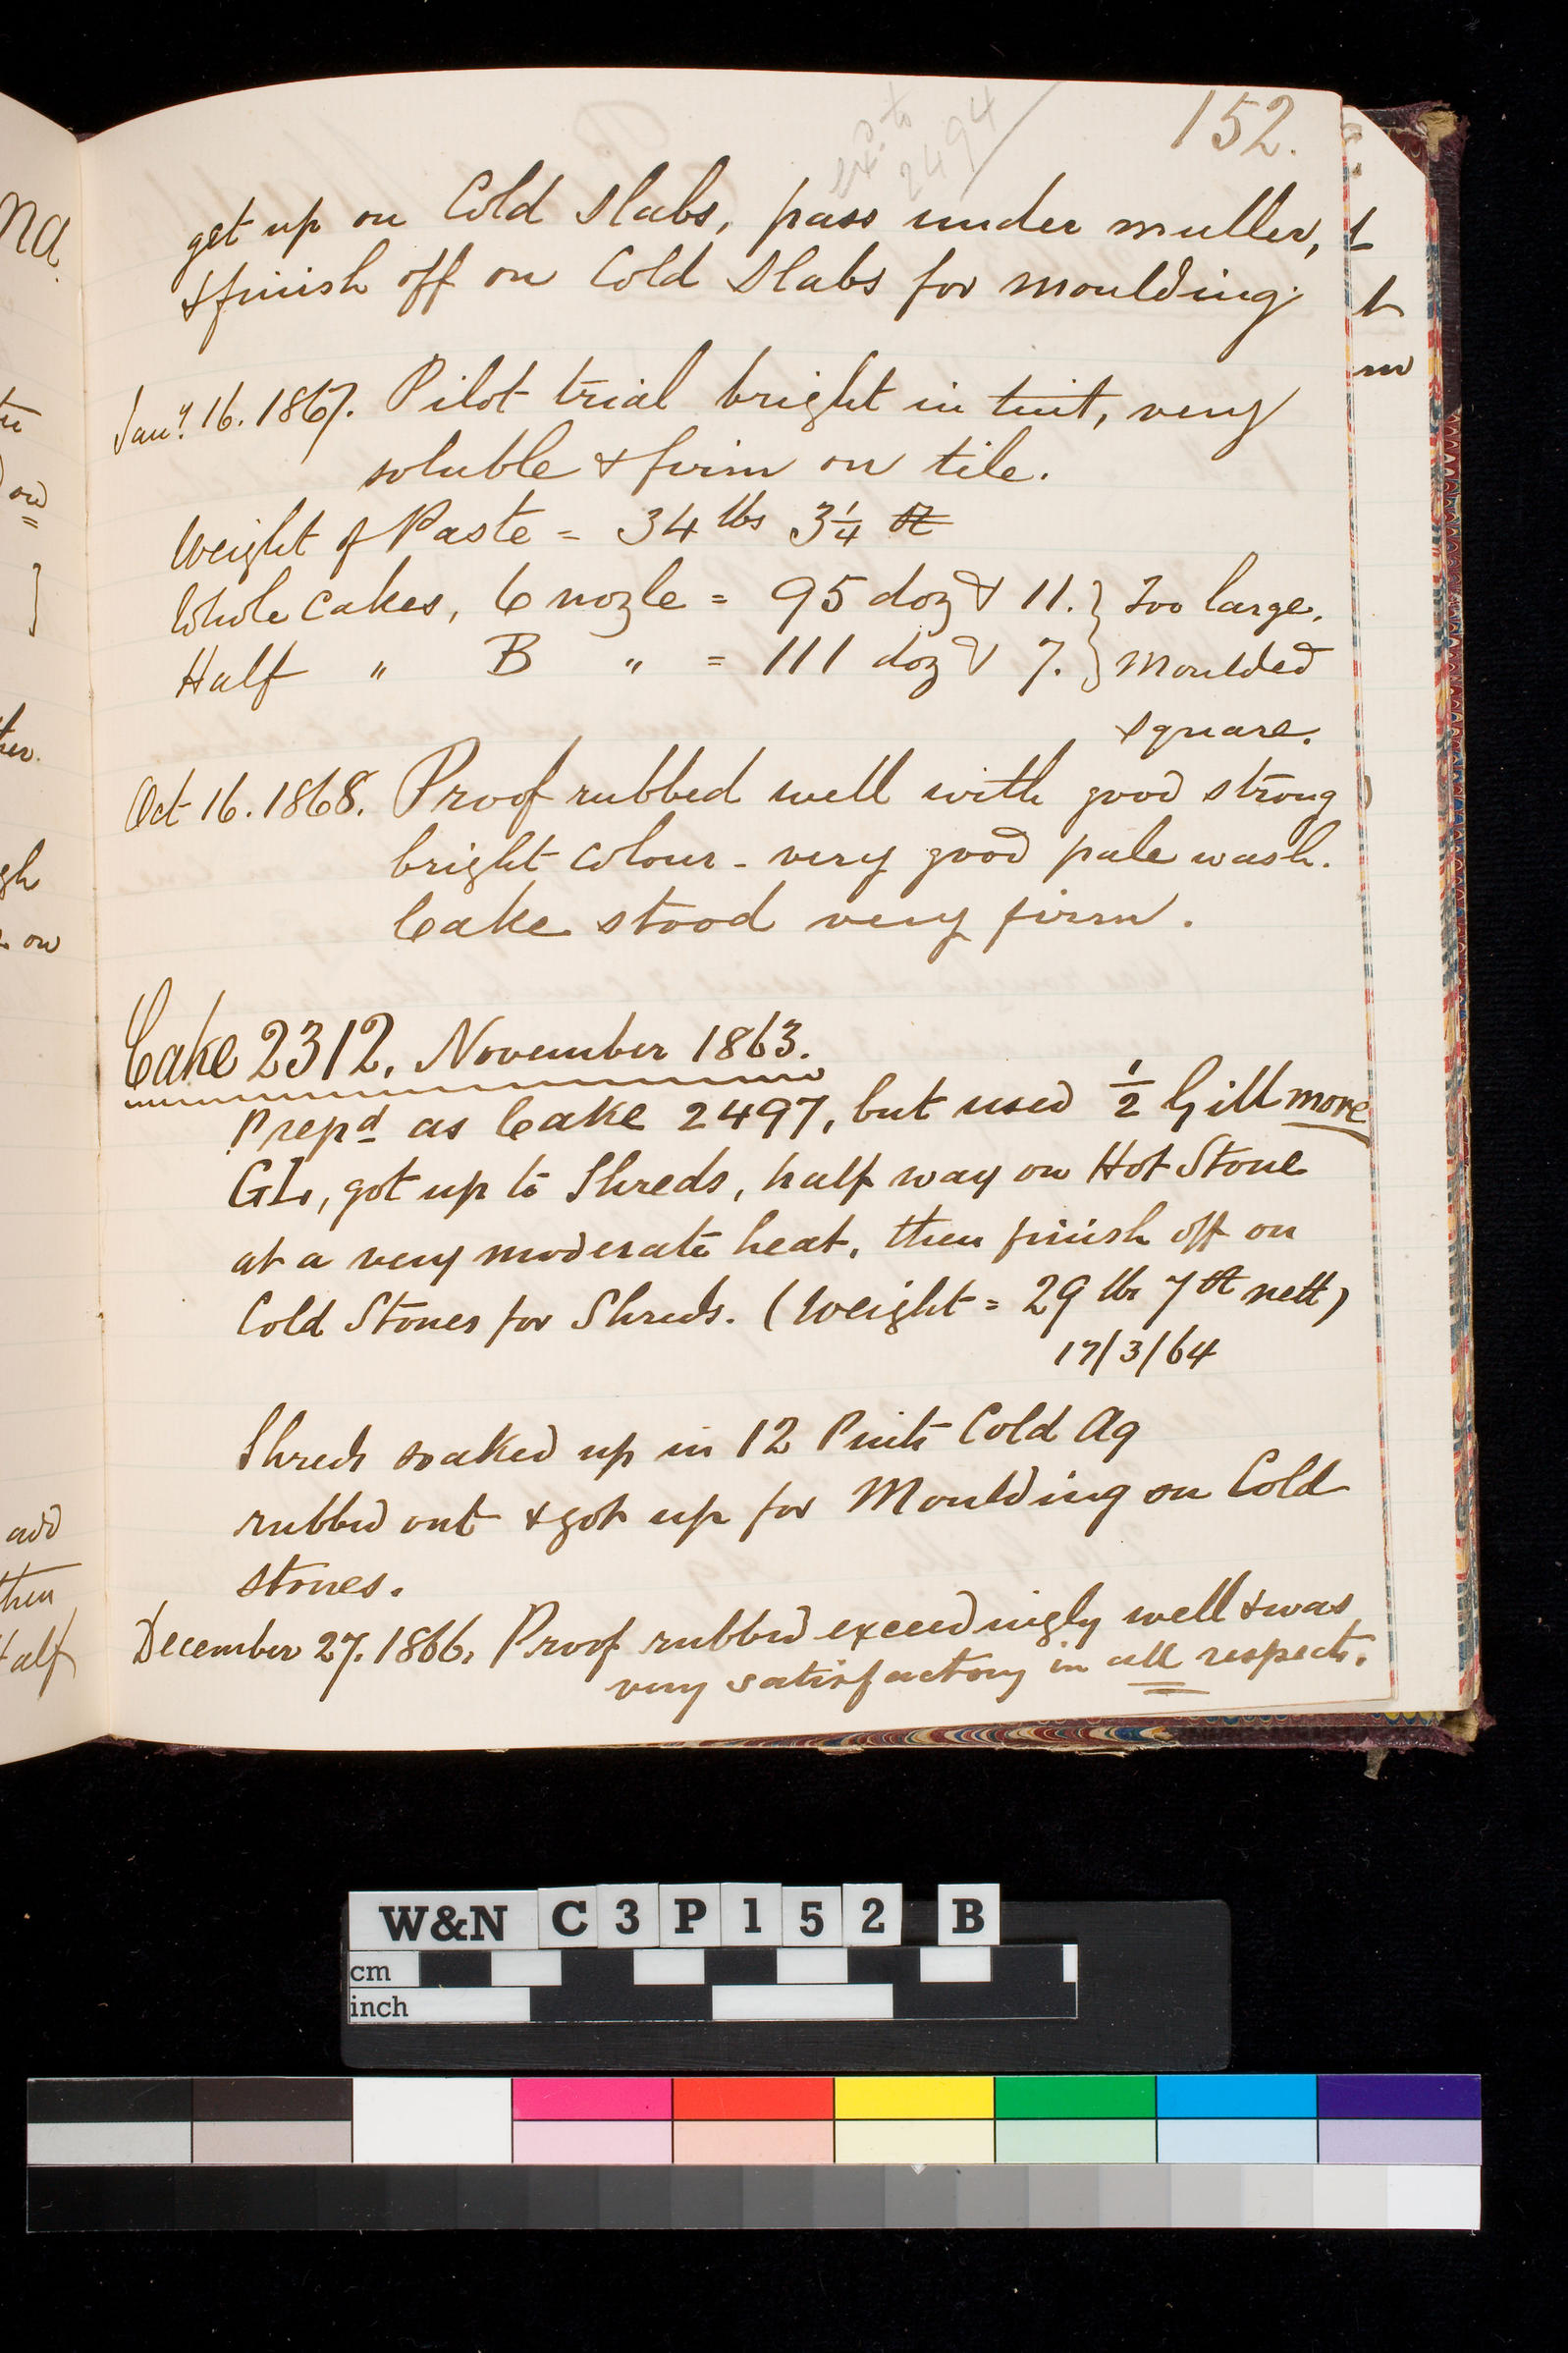 152.
ext. to
2494
get up on Cold Slabs, pass under muller,
& finish off on Cold Slabs for moulding.
Jany. 16. 1867. Pilot trial bright in tint, very
soluble & firm on tile.
Weight of Paste = 34 lbs 3¼ oz
Whole cakes, 6 nozle = 95 doz & 11. } Too large.
Half " B " = 111 doz & 7. } Moulded
square.
Oct 16. 1868. Proof rubbed well with good strong
bright colour - very good pale wash.
Cake stood very firm.
Cake 2312, November 1863.
Prepd as Cake 2497, but used ½ Gill more
GL, got up to Shreds, half way on Hot Stone
at a very moderate heat, then finish off on
Cold Stones for Shreds. (Weight = 29 lbs 7 oz nett)
17/3/64
Shreds soaked up in 12 Pints Cold Aq
rubbed out & got up for Moulding on Cold
stones.
December 27. 1866. Proof rubbed exceedingly well & was
very satisfactory in all respects.
W&N C3P152 B
cm
inch